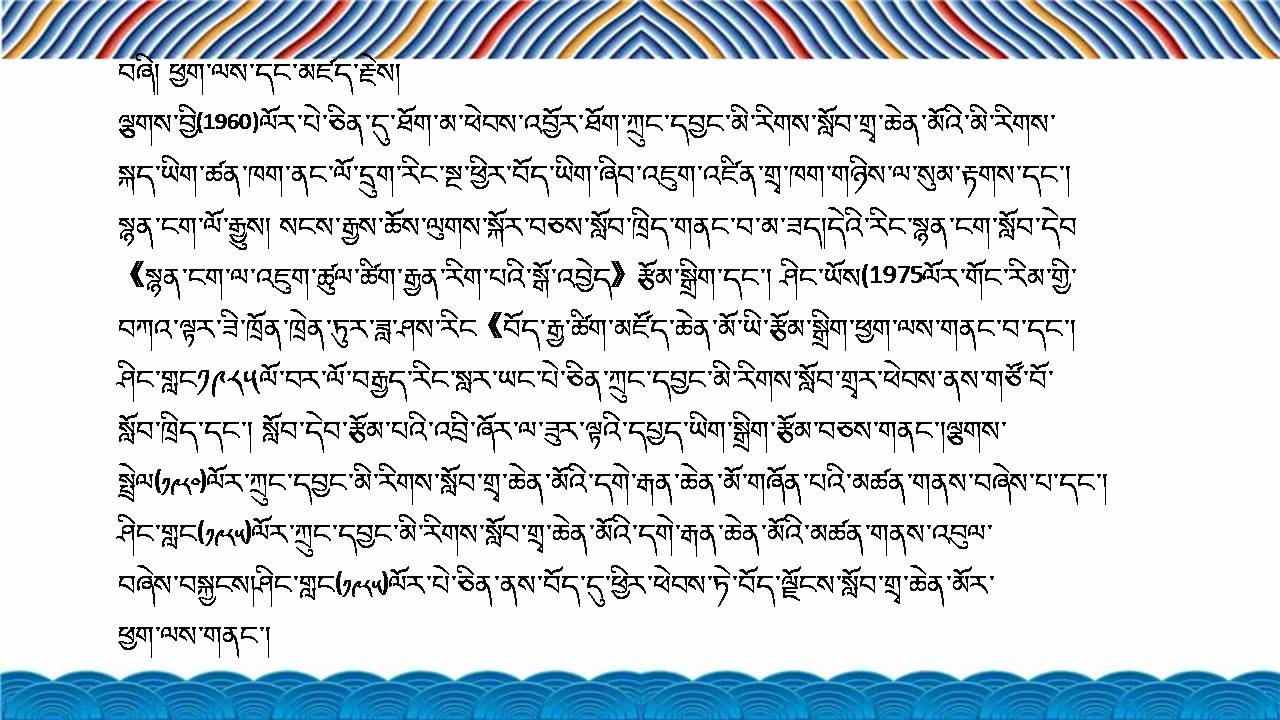 བཞི། ཕྱག་ལས་དང་མཛད་རྗེས།
ལྕགས་བྱི(1960)ལོར་པེ་ཅིན་དུ་ཐོག་མ་ཕེབས་འབྱོར་ཐོག་ཀྲུང་དབྱང་མི་རིགས་སློབ་གྲྭ་ཆེན་མོའི་མི་རིགས་
སྐད་ཡིག་ཚན་ཁག་ནང་ལོ་དྲུག་རིང་སྔ་ཕྱིར་བོད་ཡིག་ཞིབ་འཇུག་འཛིན་གྲྭ་ཁག་གཉིས་ལ་སུམ་རྟགས་དང་།
སྙན་ངག་ལོ་རྒྱུས། སངས་རྒྱས་ཆོས་ལུགས་སྐོར་བཅས་སློབ་ཁྲིད་གནང་བ་མ་ཟད།དེའི་རིང་སྙན་ངག་སློབ་དེབ
《སྙན་ངག་ལ་འཇུག་ཚུལ་ཚིག་རྒྱན་རིག་པའི་སྒོ་འབྱེད》རྩོམ་སྒྲིག་དང་། ཤིང་ཡོས(1975ལོར་གོང་རིམ་གྱི་
བཀའ་ལྟར་ཟི་ཁྲོན་ཁྲེན་ཏུར་ཟླ་ཤས་རིང《བོད་རྒྱ་ཚིག་མཛོད་ཆེན་མོ་ཡི་རྩོམ་སྒྲིག་ཕྱག་ལས་གནང་བ་དང་།
ཤིང་གླང༡༩༨༥ལོ་བར་ལོ་བརྒྱད་རིང་སླར་ཡང་པེ་ཅིན་ཀྲུང་དབྱང་མི་རིགས་སློབ་གྲྭར་ཕེབས་ནས་གཙོ་བོ་
སློབ་ཁྲིད་དང་། སློབ་དེབ་རྩོམ་པའི་འབྲི་ཞོར་ལ་ཟུར་ལྟའི་དཔྱད་ཡིག་སྒྲིག་རྩོམ་བཅས་གནང་།ལྕགས་
སྤྲེལ(༡༩༨༠)ལོར་ཀྲུང་དབྱང་མི་རིགས་སློབ་གྲྭ་ཆེན་མོའི་དགེ་རྒན་ཆེན་མོ་གཞོན་པའི་མཚན་གནས་བཞེས་པ་དང་།
ཤིང་གླང(༡༩༨༥)ལོར་ཀྲུང་དབྱང་མི་རིགས་སློབ་གྲྭ་ཆེན་མོའི་དགེ་རྒན་ཆེན་མོའི་མཚན་གནས་འབུལ་
བཞེས་བསྐྱངས།ཤིང་གླང(༡༩༨༥)ལོར་པེ་ཅིན་ནས་བོད་དུ་ཕྱིར་ཕེབས་ཏེ་བོད་ལྗོངས་སློབ་གྲྭ་ཆེན་མོར་
ཕྱག་ལས་གནང་།